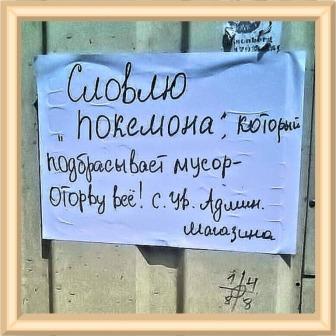 Словлю
„покемона", который
подбрасывает мусор-
Оторву всё! с. ур. Админ.
магазина